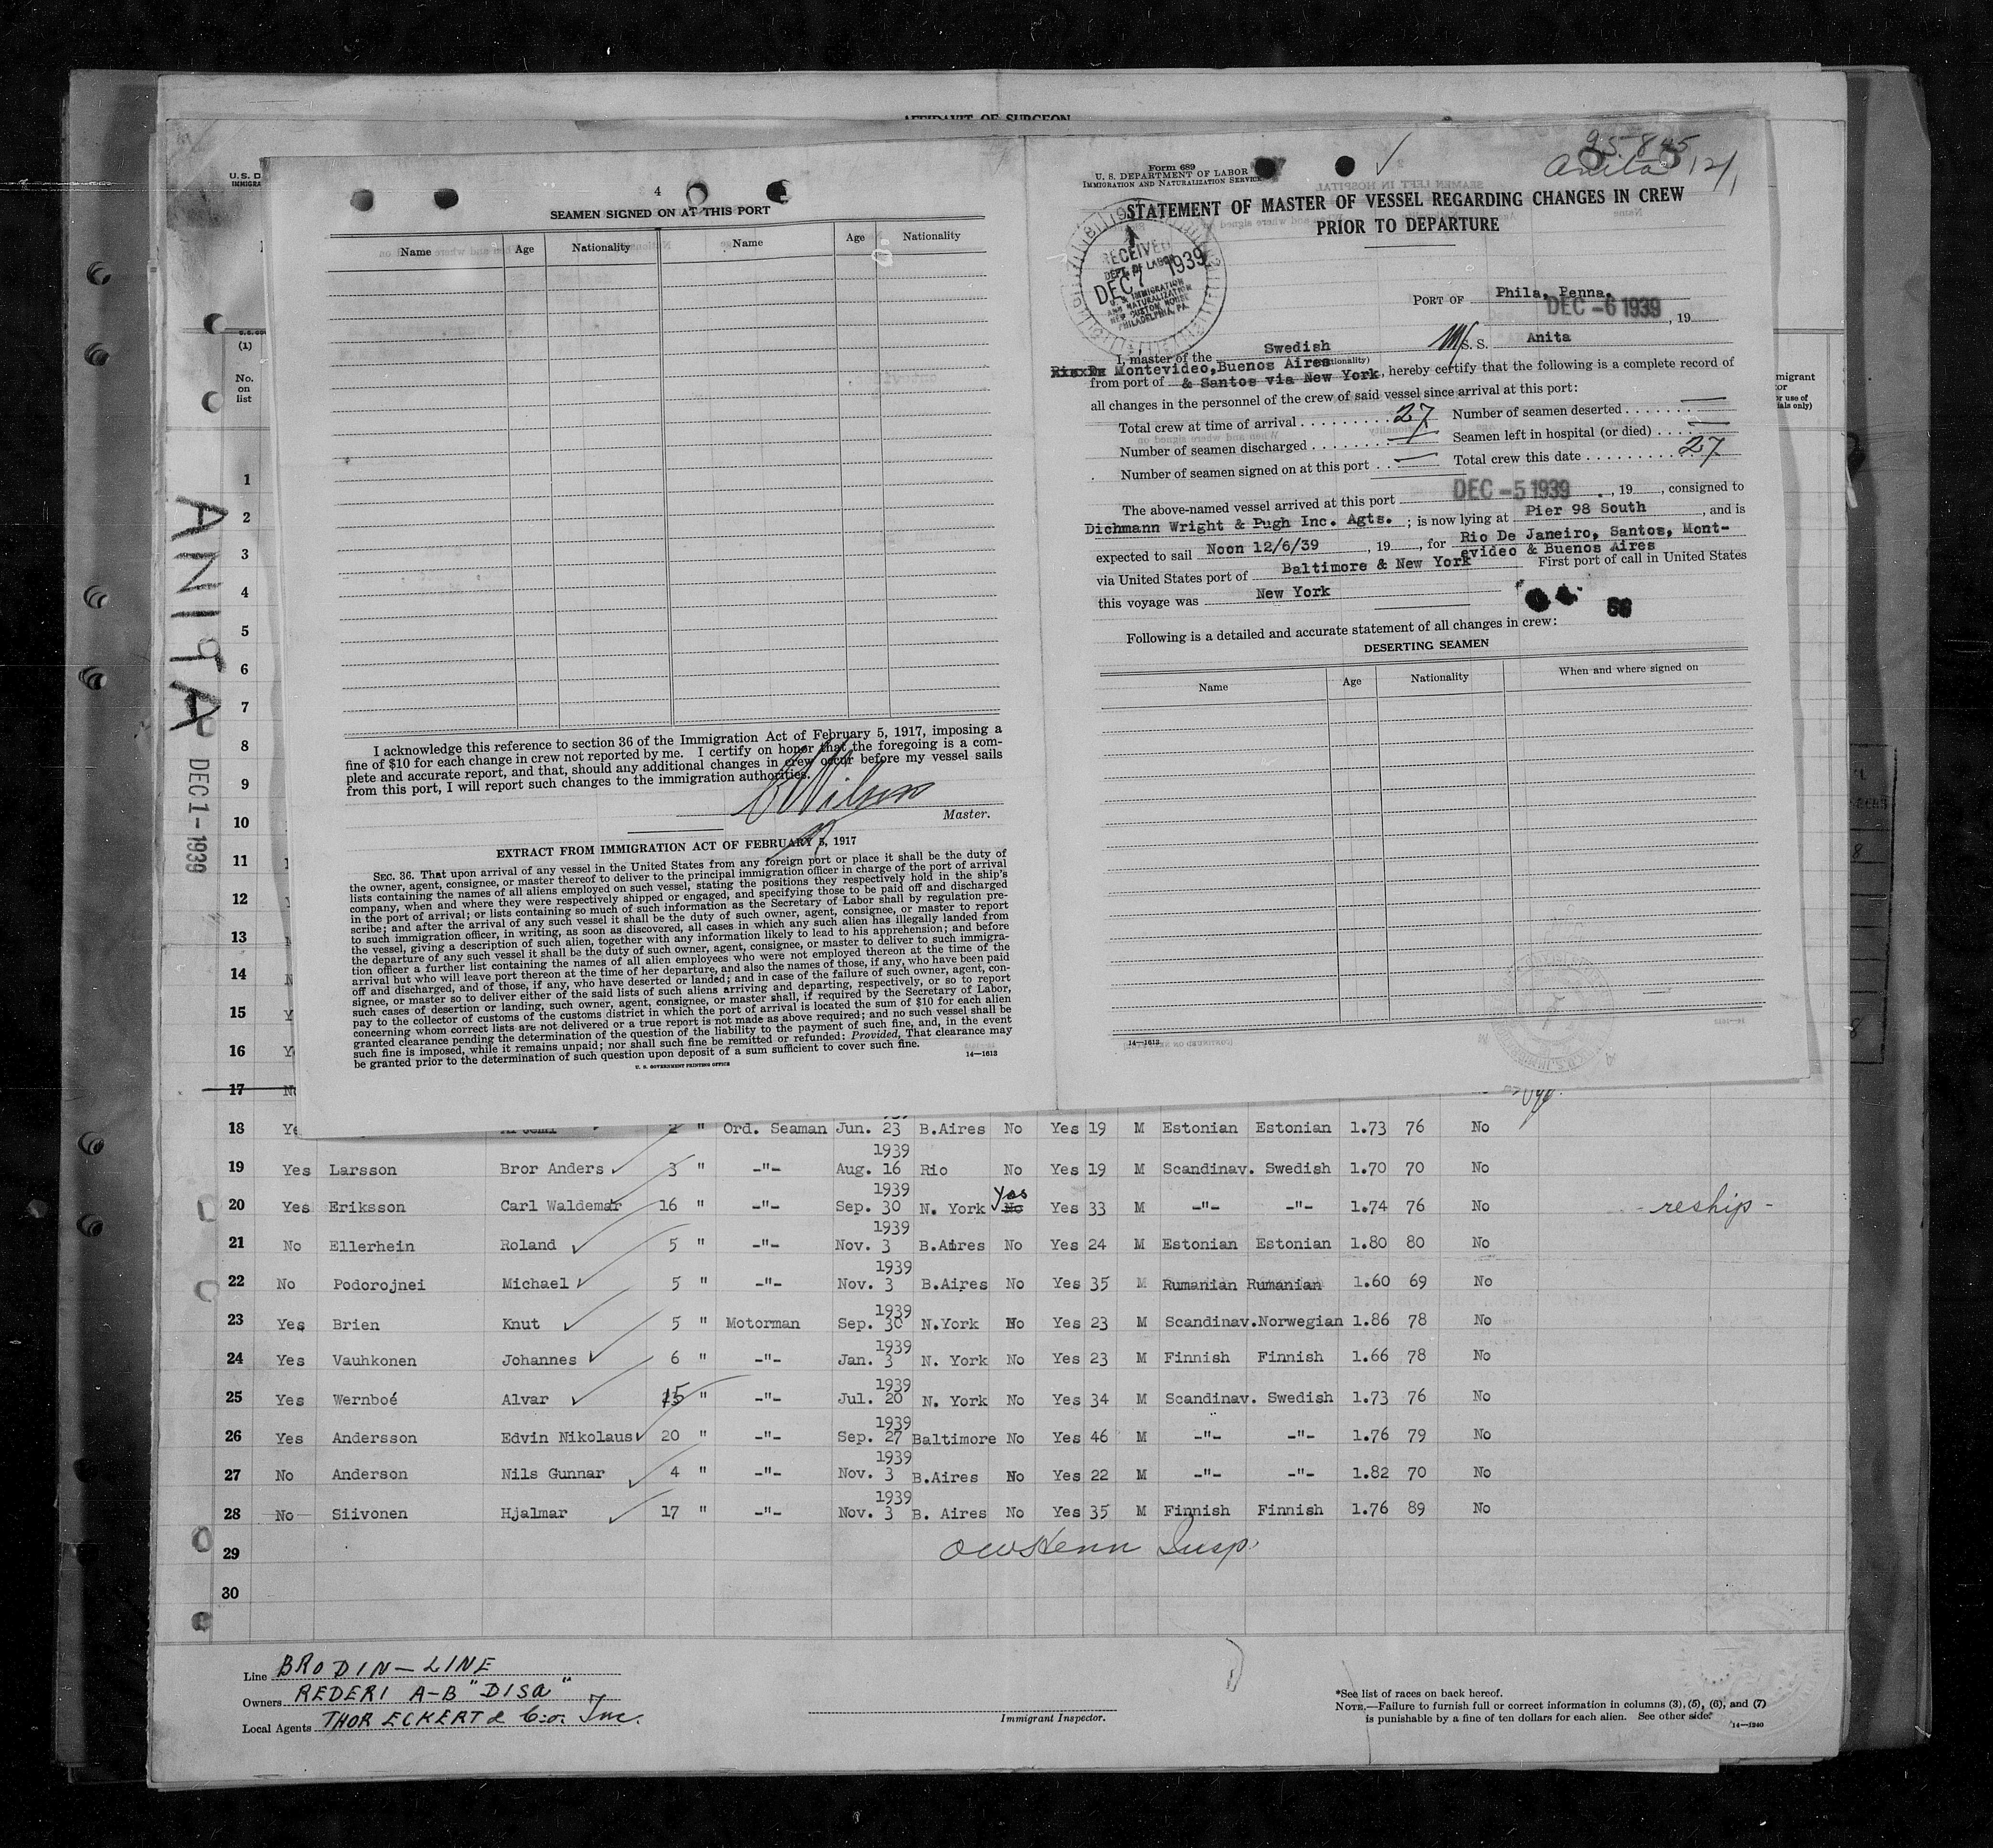 AFFIDAVIT OF SURGEON
U.S. D
IMMIGRA
(1)
No.
on
list
ANITA
DEC 1-1939
4
SEAMEN SIGNED ON AT THIS PORT
Name Age Nationality Name Age Nationality
I acknowledge this reference to section 36 of the Immigration Act of February 5, 1917, imposing a
fine of $10 for each change in crew not reported by me. I certify on honor that the foregoing is a com-
plete and accurate report, and that, should any additional changes in crew occur before my vessel sails
from this port, I will report such changes to the immigration authorities.
Master.
EXTRACT FROM IMMIGRATION ACT OF FEBRUARY 5, 1917
SEC. 36. That upon arrival of any vessel in the United States from any foreign port or place it shall be the duty of
the owner, agent, consignee, or master thereof to deliver to the principal immigration officer in charge of the port of arrival
lists containing the names of all aliens employed on such vessel, stating the positions they respectively hold in the ship's
company, when and where they were respectively shipped or engaged, and specifying those to be paid off and discharged
in the port of arrival; or lists containing so much of such information as the Secretary of Labor shall by regulation pre-
scribe; and after the arrival of any such vessel it shall be the duty of such owner, agent, consignee, or master to report
to such immigration officer, in writing, as soon as discovered, all cases in which any such alien has illegally landed from
the vessel, giving a description of such alien, together with any information likely to lead to his apprehension; and before
the departure of any such vessel it shall be the duty of such owner, agent, consignee, or master to deliver to such immigra-
tion officer a further list containing the names of all alien employees who were not employed thereon at the time of the
arrival but who will leave port thereon at the time of her departure, and also the names of those, if any, who have been paid
off and discharged, and of those, if any, who have deserted or landed; and in case of the failure of such owner, agent, con-
signee, or master so to deliver either of the said lists of such aliens arriving and departing, respectively, or so to report
such cases of desertion or landing, such owner, agent, consignee, or master shall, if required by the Secretary of Labor,
pay to the collector of customs of the customs district in which the port of arrival is located the sum of $10 for each alien
concerning whom correct lists are not delivered or a true report is not made as above required; and no such vessel shall be
granted clearance pending the determination of the question of the liability to the payment of such fine, and, in the event
such fine is imposed, while it remains unpaid; nor shall such fine be remitted or refunded: Provided, That clearance may
be granted prior to the determination of such question upon deposit of a sum sufficient to cover such fine.
14—1613
U. S. GOVERNMENT PRINTING OFFICE
95845
Anita 12/1
Form 689
U. S. DEPARTMENT OF LABOR
IMMIGRATION AND NATURALIZATION SERVICE
STATEMENT OF MASTER OF VESSEL REGARDING CHANGES IN CREW
PRIOR TO DEPARTURE
RECEIVED
DEPT. OF LABOR
DEC 7 1939
U. S. IMMIGRATION
AND NATURALIZATION
NEW CUSTOM HOUSE
PHILADELPHIA, PA.
PORT OF Phila, Penna.
DEC -6 1939, 19
I, master of the Swedish M/S. S. Anita
(Nationality)
Montevideo, Buenos Aires
from port of & Santos via New York, hereby certify that the following is a complete record of
all changes in the personnel of the crew of said vessel since arrival at this port:
Total crew at time of arrival 27 Number of seamen deserted —
Number of seamen discharged — Seamen left in hospital (or died) —
Number of seamen signed on at this port — Total crew this date 27
The above-named vessel arrived at this port DEC -5 1939, 19, consigned to
Dichmann Wright & Pugh Inc. Agts. ; is now lying at Pier 98 South, and is
expected to sail Noon 12/6/39, 19, for Rio De Janeiro, Santos, Mont-
evideo & Buenos Aires
via United States port of Baltimore & New York First port of call in United States
this voyage was New York
56
Following is a detailed and accurate statement of all changes in crew:
DESERTING SEAMEN
Name Age Nationality When and where signed on
14—1613
migrant
or
or use of
ials only)
1
2
3
4
5
6
7
8
9
10
11
12
13
14
15 Y
16 Ye
17 No
18 Ye 2 " Ord. Seaman Jun. 23 B.Aires No Yes 19 M Estonian Estonian 1.73 76 No
19 Yes Larsson Bror Anders 3 " -"- 1939 Aug. 16 Rio No Yes 19 M Scandinav. Swedish 1.70 70 No
20 Yes Eriksson Carl Waldemar 16 " -"- 1939 Sep. 30 N. York No Yes Yes 33 M -"- -"- 1.74 76 No - reship -
21 No Ellerhein Roland 5 " -"- 1939 Nov. 3 B.Aires No Yes 24 M Estonian Estonian 1.80 80 No
22 No Podorojnei Michael 5 " -"- 1939 Nov. 3 B.Aires No Yes 35 M Rumanian Rumanian 1.60 69 No
23 Yes Brien Knut 5 " Motorman 1939 Sep. 30 N.York No Yes 23 M Scandinav. Norwegian 1.86 78 No
24 Yes Vauhkonen Johannes 6 " -"- 1939 Jan. 3 N. York No Yes 23 M Finnish Finnish 1.66 78 No
25 Yes Wernboé Alvar 15 " -"- 1939 Jul. 20 N. York No Yes 34 M Scandinav. Swedish 1.73 76 No
26 Yes Andersson Edvin Nikolaus 20 " -"- 1939 Sep. 27 Baltimore No Yes 46 M -"- -"- 1.76 79 No
27 No Anderson Nils Gunnar 4 " -"- 1939 Nov. 3 B.Aires No Yes 22 M -"- -"- 1.82 70 No
28 No Siivonen Hjalmar 17 " -"- 1939 Nov. 3 B. Aires No Yes 35 M Finnish Finnish 1.76 89 No
29 Insp.
30
Line BRODIN-LINE
Owners REDERI A-B "DISA"
Local Agents THOR ECKERT & Co. Inc.
Immigrant Inspector.
*See list of races on back hereof.
NOTE.—Failure to furnish full or correct information in columns (3), (5), (6), and (7)
is punishable by a fine of ten dollars for each alien. See other side.
14—1240